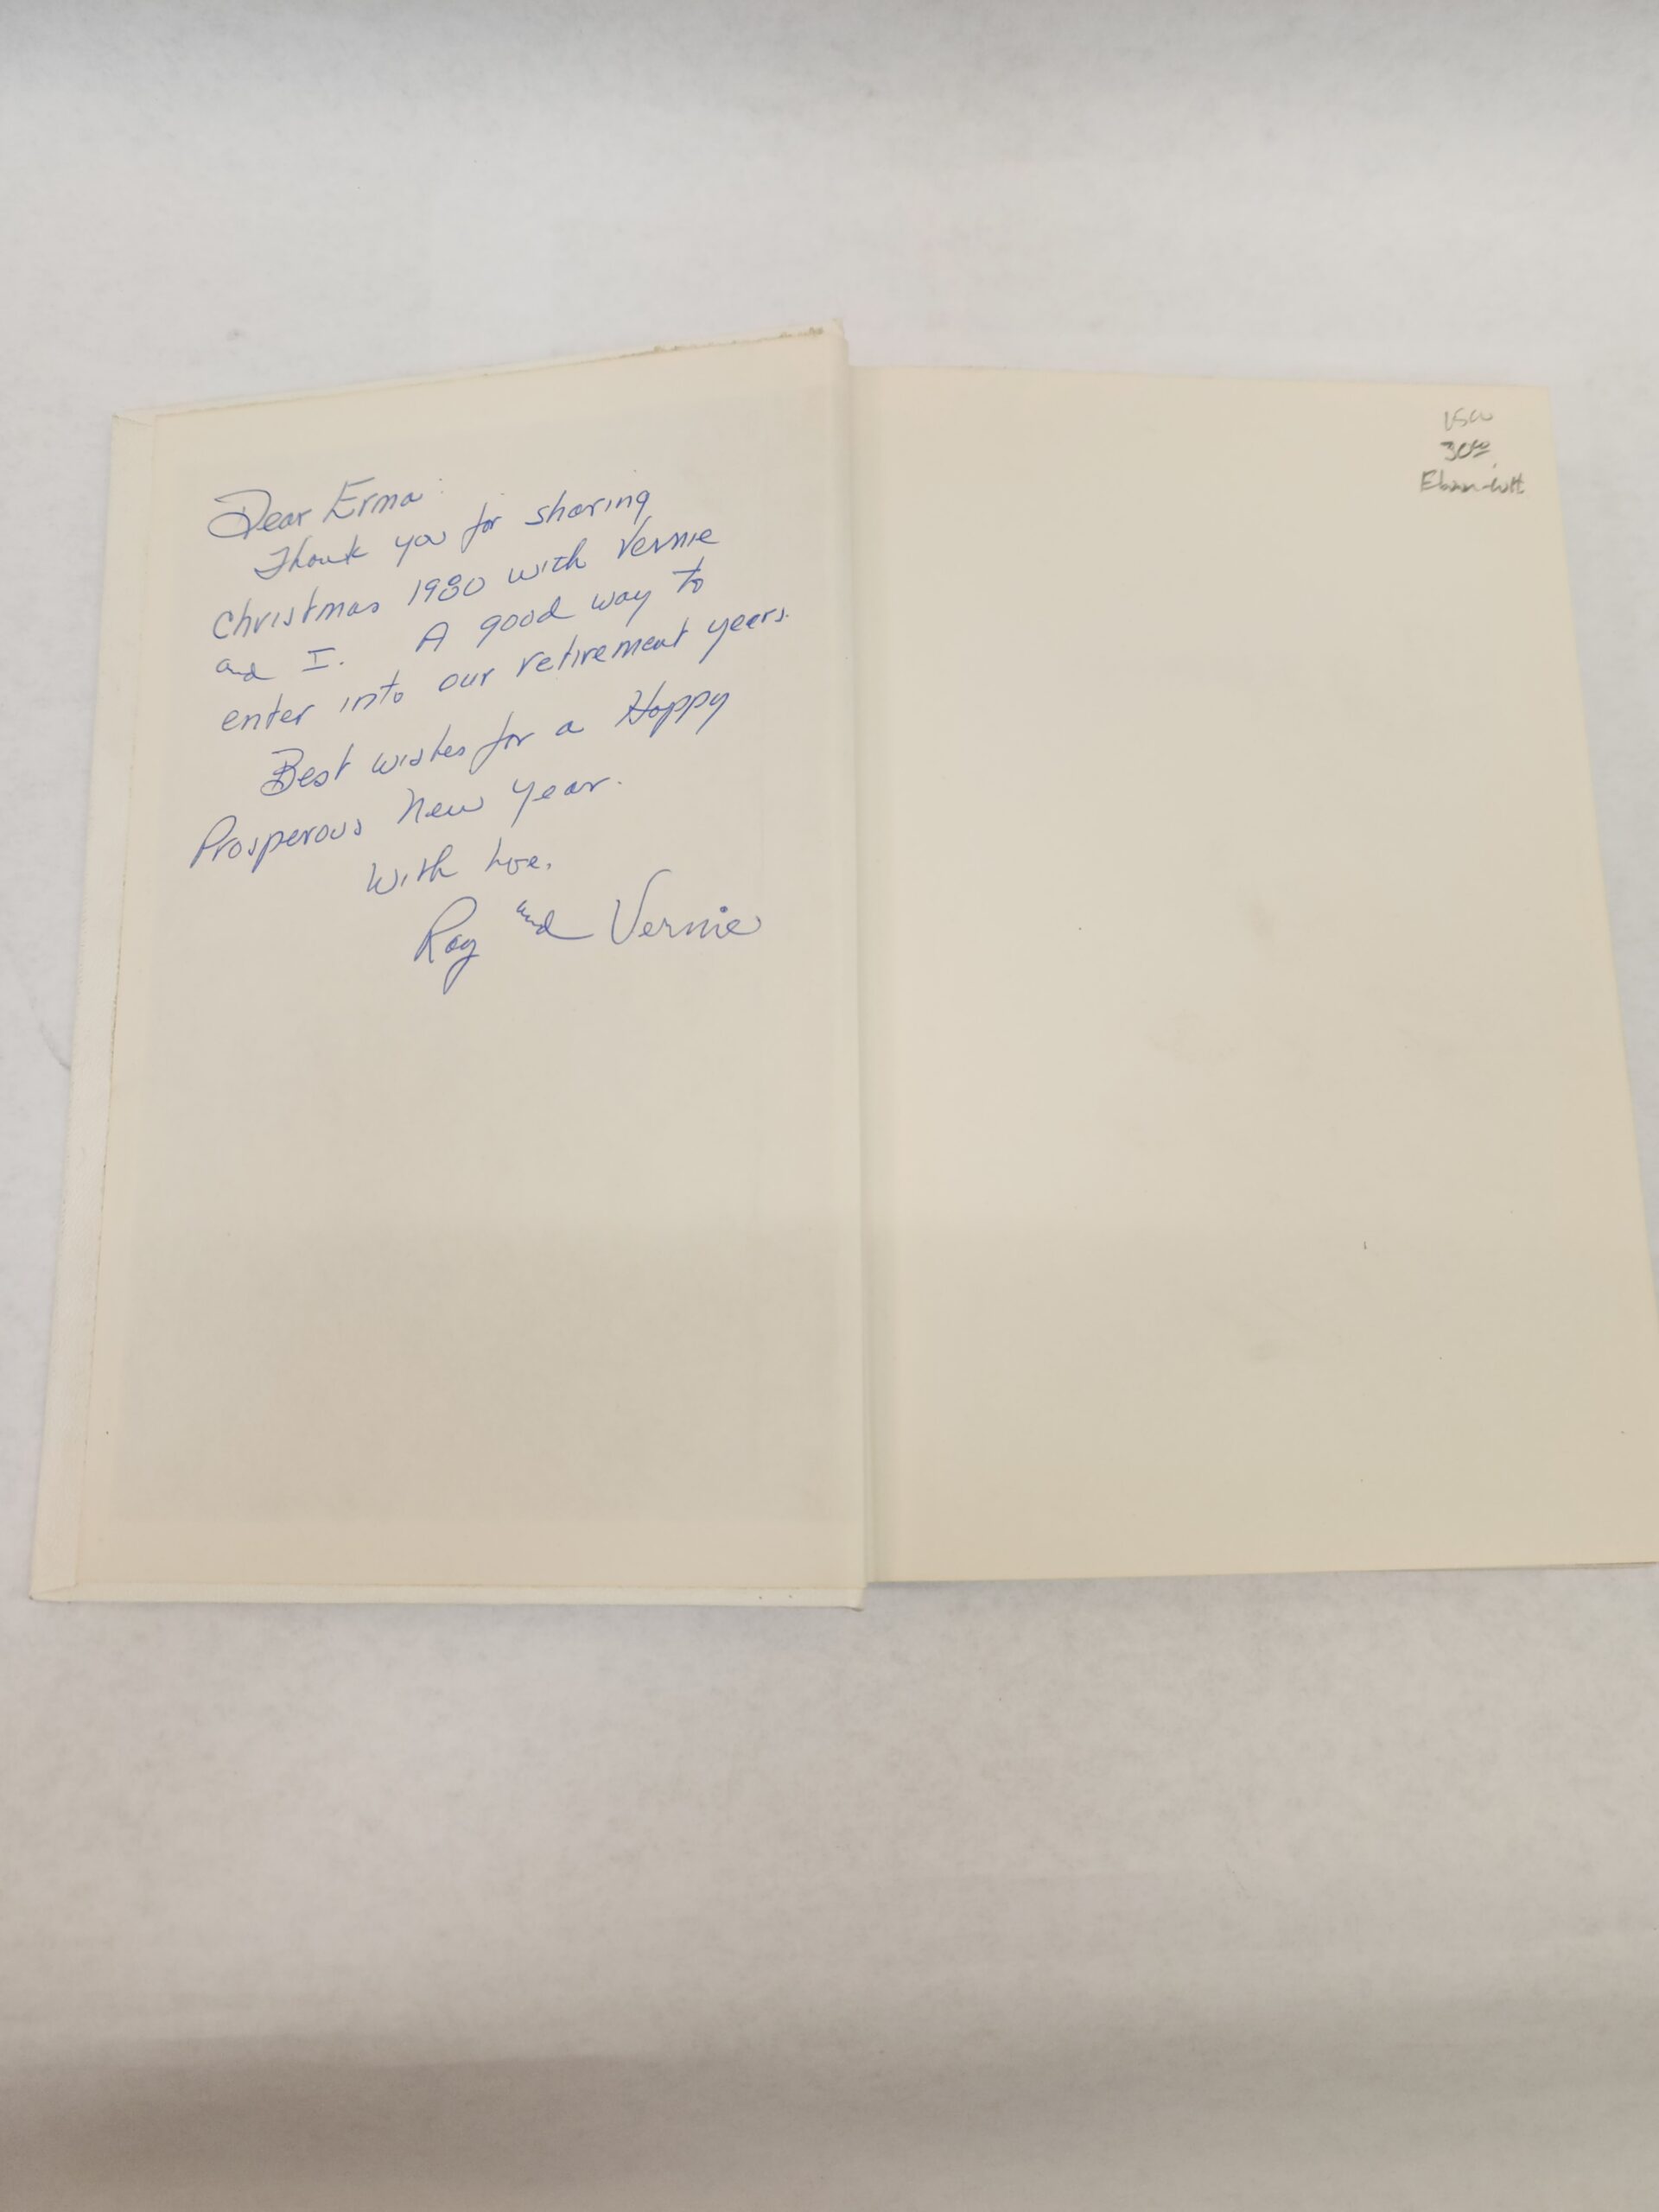 Dear Erma:
Thank you for sharing
Christmas 1980 with Vernie
and I. A good way to
enter into our retirement years.
Best wishes for a Happy
Prosperous New Year.
With love,
Ray and Vernie
30⁰⁰